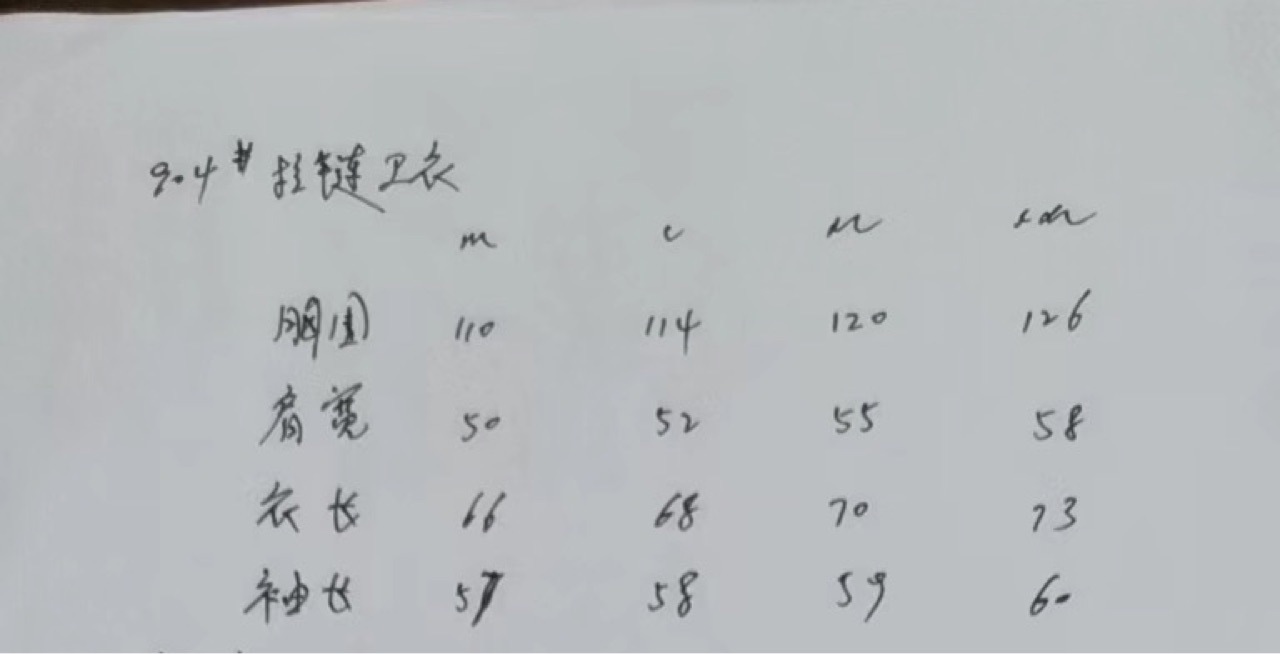 904# 拉链卫衣
M L XL XXL
胸围 110 114 120 126
肩宽 50 52 55 58
衣长 66 68 70 73
袖长 57 58 59 60